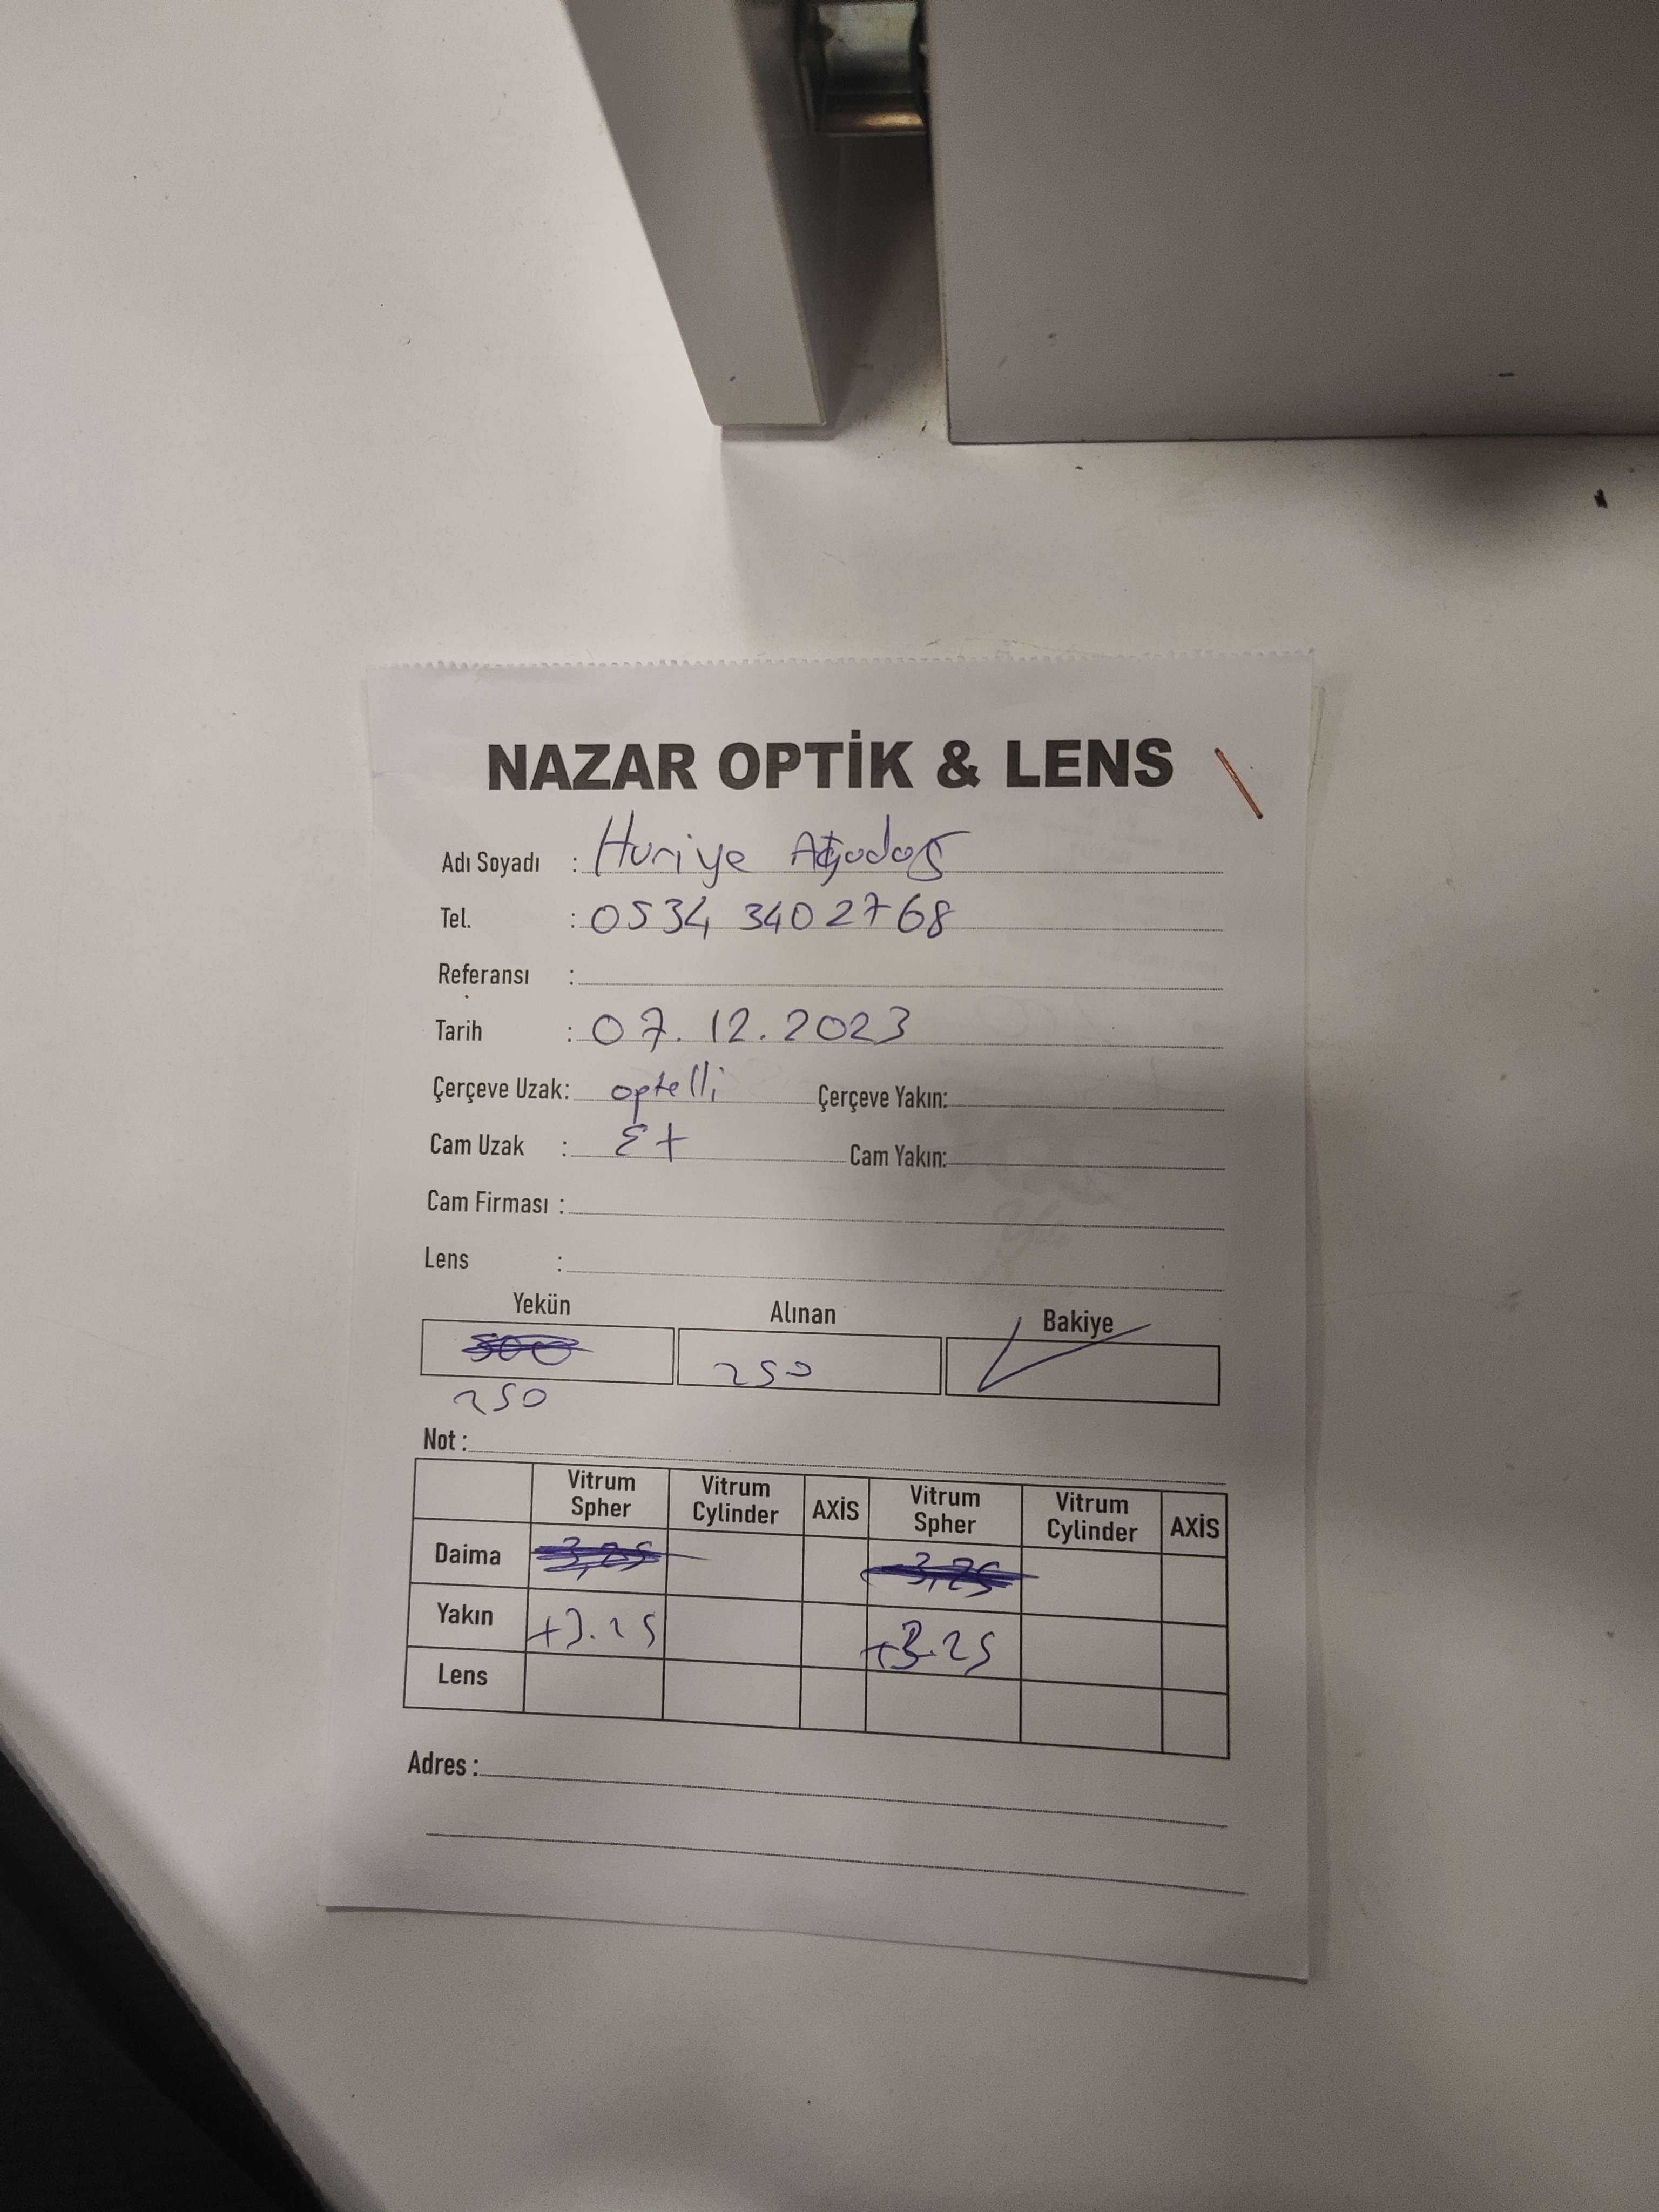 NAZAR OPTİK & LENS
Adı Soyadı : Huriye
Tel. : 0534 340 2768
Referansı :
Tarih : 07.12.2023
Çerçeve Uzak: optelli Çerçeve Yakın:
Cam Uzak : Cam Yakın:
Cam Firması :
Lens :
Yekün Alınan Bakiye
500 250
250
Not :
Vitrum Spher Vitrum Cylinder AXİS Vitrum Spher Vitrum Cylinder AXİS
Daima 3,25
Yakın +3.25 +3.25
Lens
Adres :